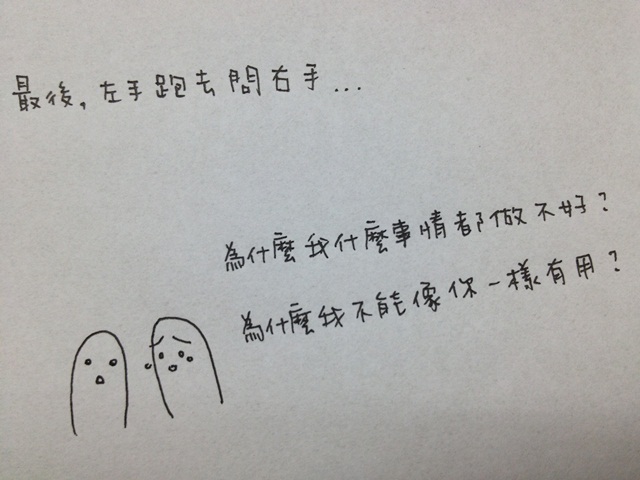 最後，左手跑去問右手...
為什麼我什麼事情都做不好？
為什麼我不能像你一樣有用？